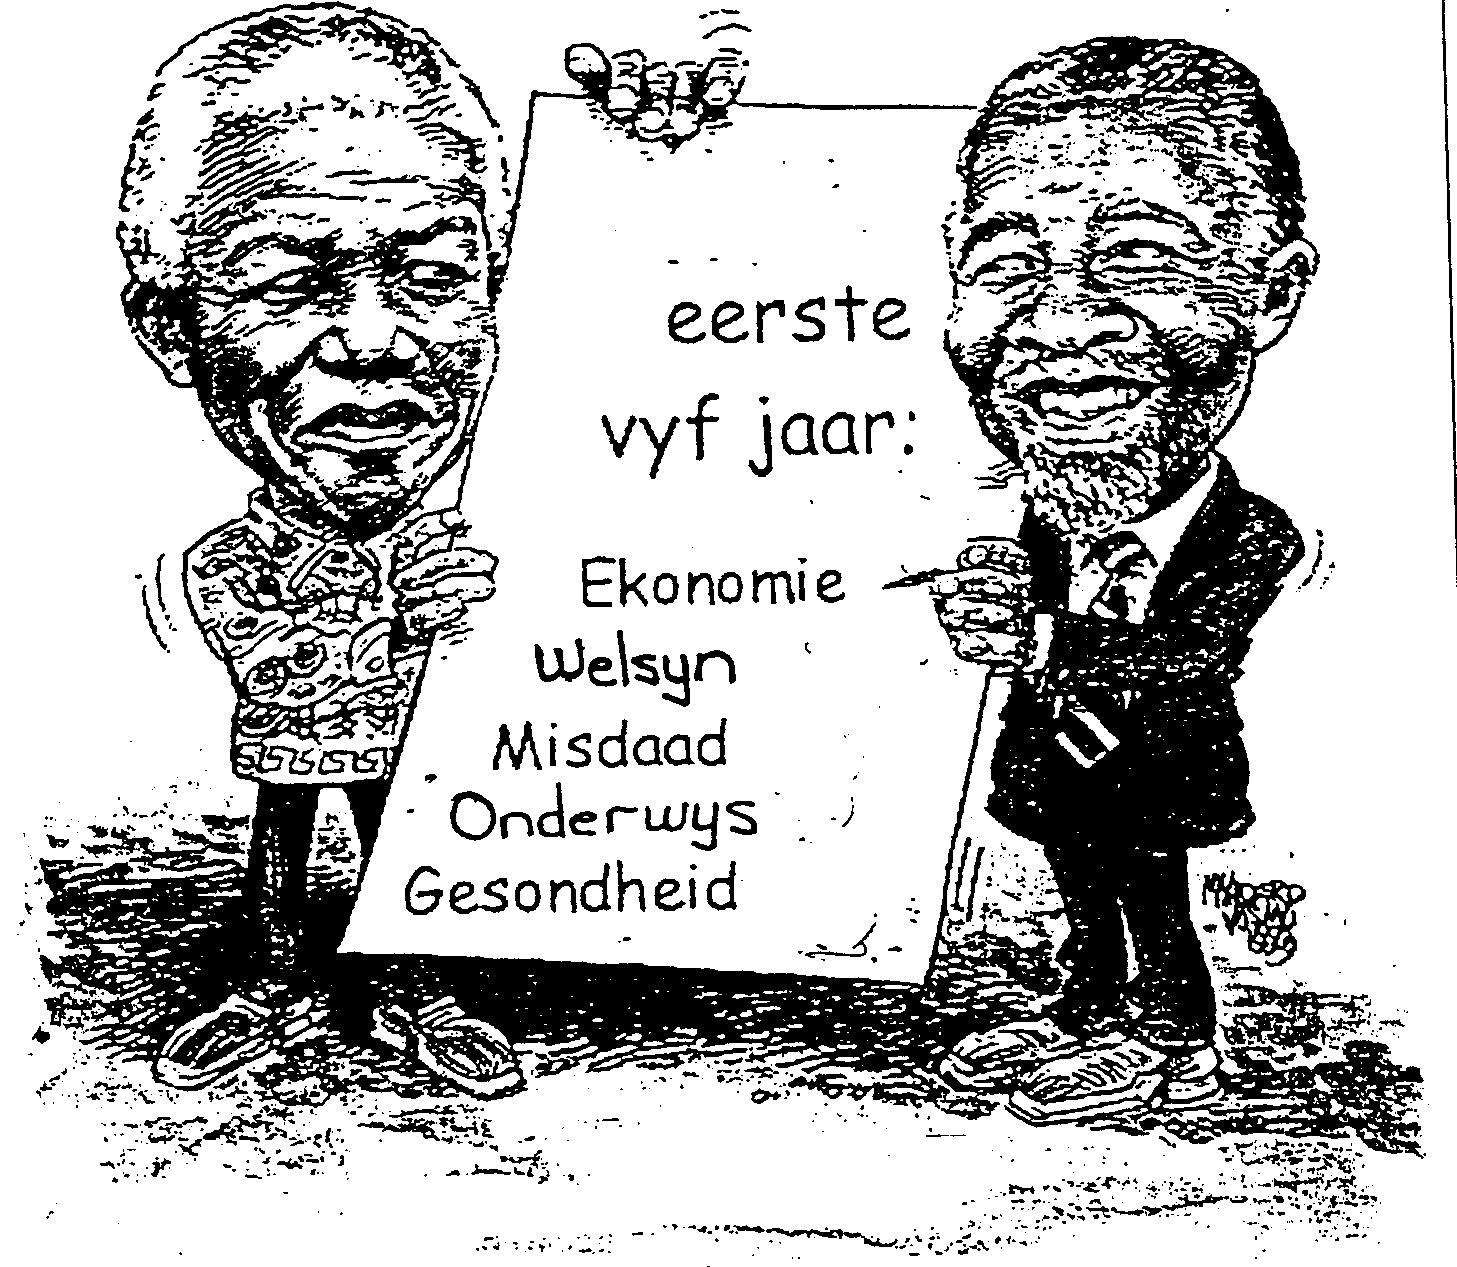 eerste
vyf jaar:
Ekonomie
Welsyn
Misdaad
Onderwys
Gesondheid